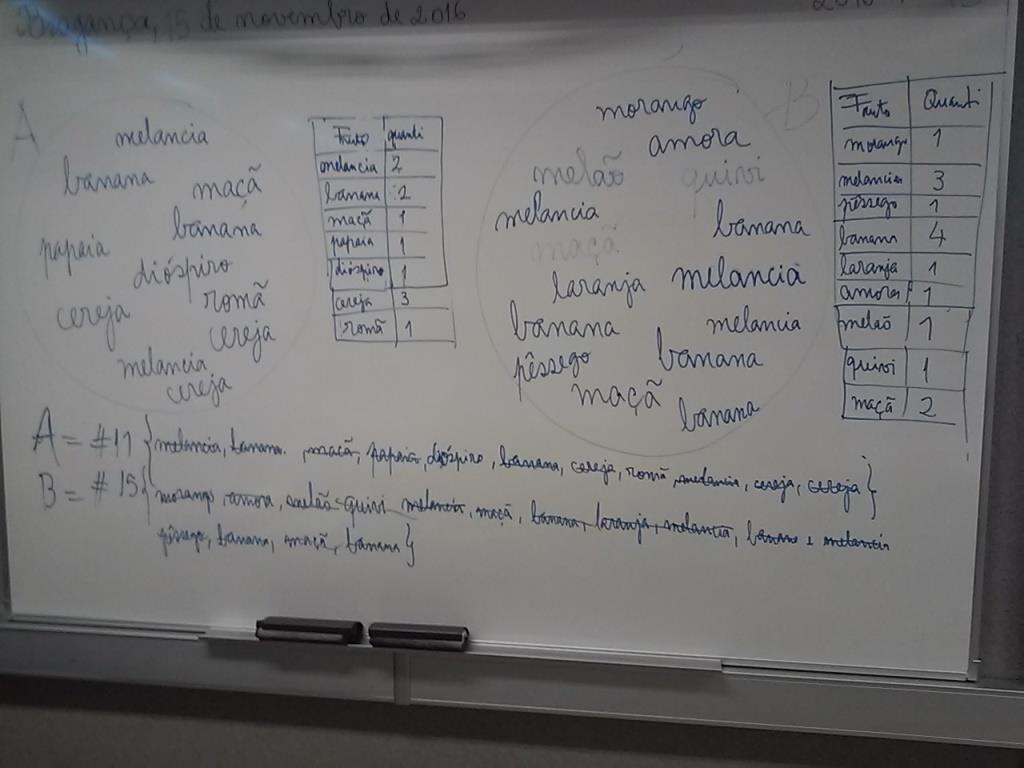 Bragança, 15 de novembro de 2016
A
melancia
banana
maçã
papaia
banana
dióspiro
cereja
romã
cereja
melancia
cereja
Fruto quanti
melancia 2
banana 2
maçã 1
papaia 1
dióspiro 1
cereja 3
romã 1
B
morango
amora
melão quivi
melancia
banana
maçã
laranja melancia
banana melancia
pêssego banana
maçã
banana
Fruto Quanti
morango 1
melancia 3
pêssego 1
banana 4
laranja 1
amora 1
melão 1
quivi 1
maçã 2
A = #11 {melancia, banana, maçã, papaia, dióspiro, banana, cereja, romã, melancia, cereja, cereja}
B = #15 {morango, amora, melão quivi melancia, maçã, banana, laranja, melancia, banana e melancia
pêssego, banana, maçã, banana}